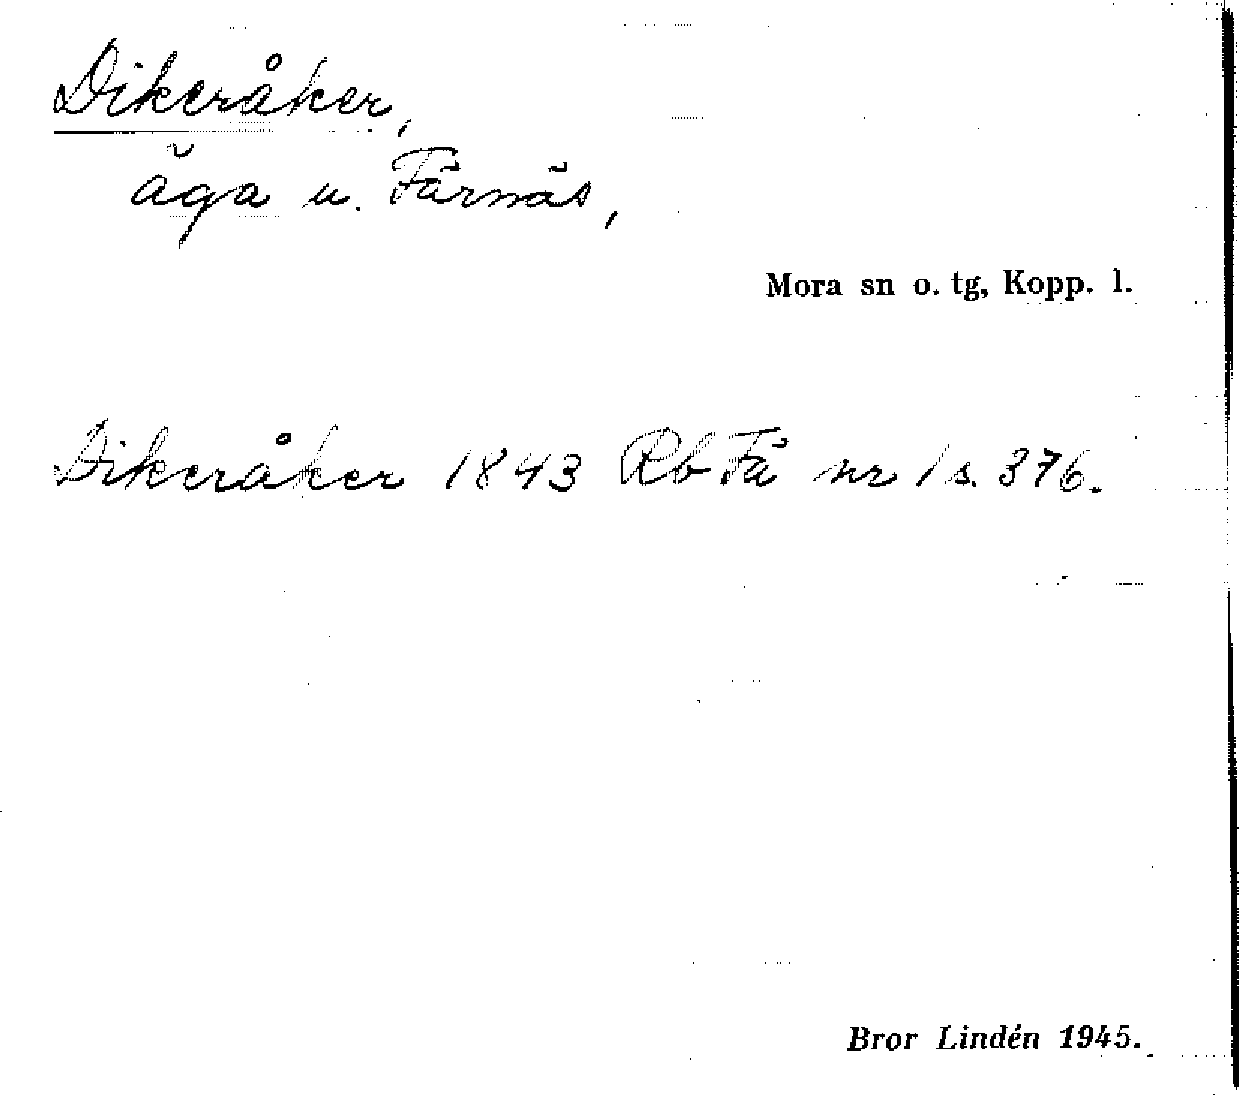 Dikeråker,
äga u. Färnäs,
Mora sn o. tg, Kopp. l.
Dikeråker 1843 Rb Fä nr 1 s. 376.
Bror Lindén 1945.